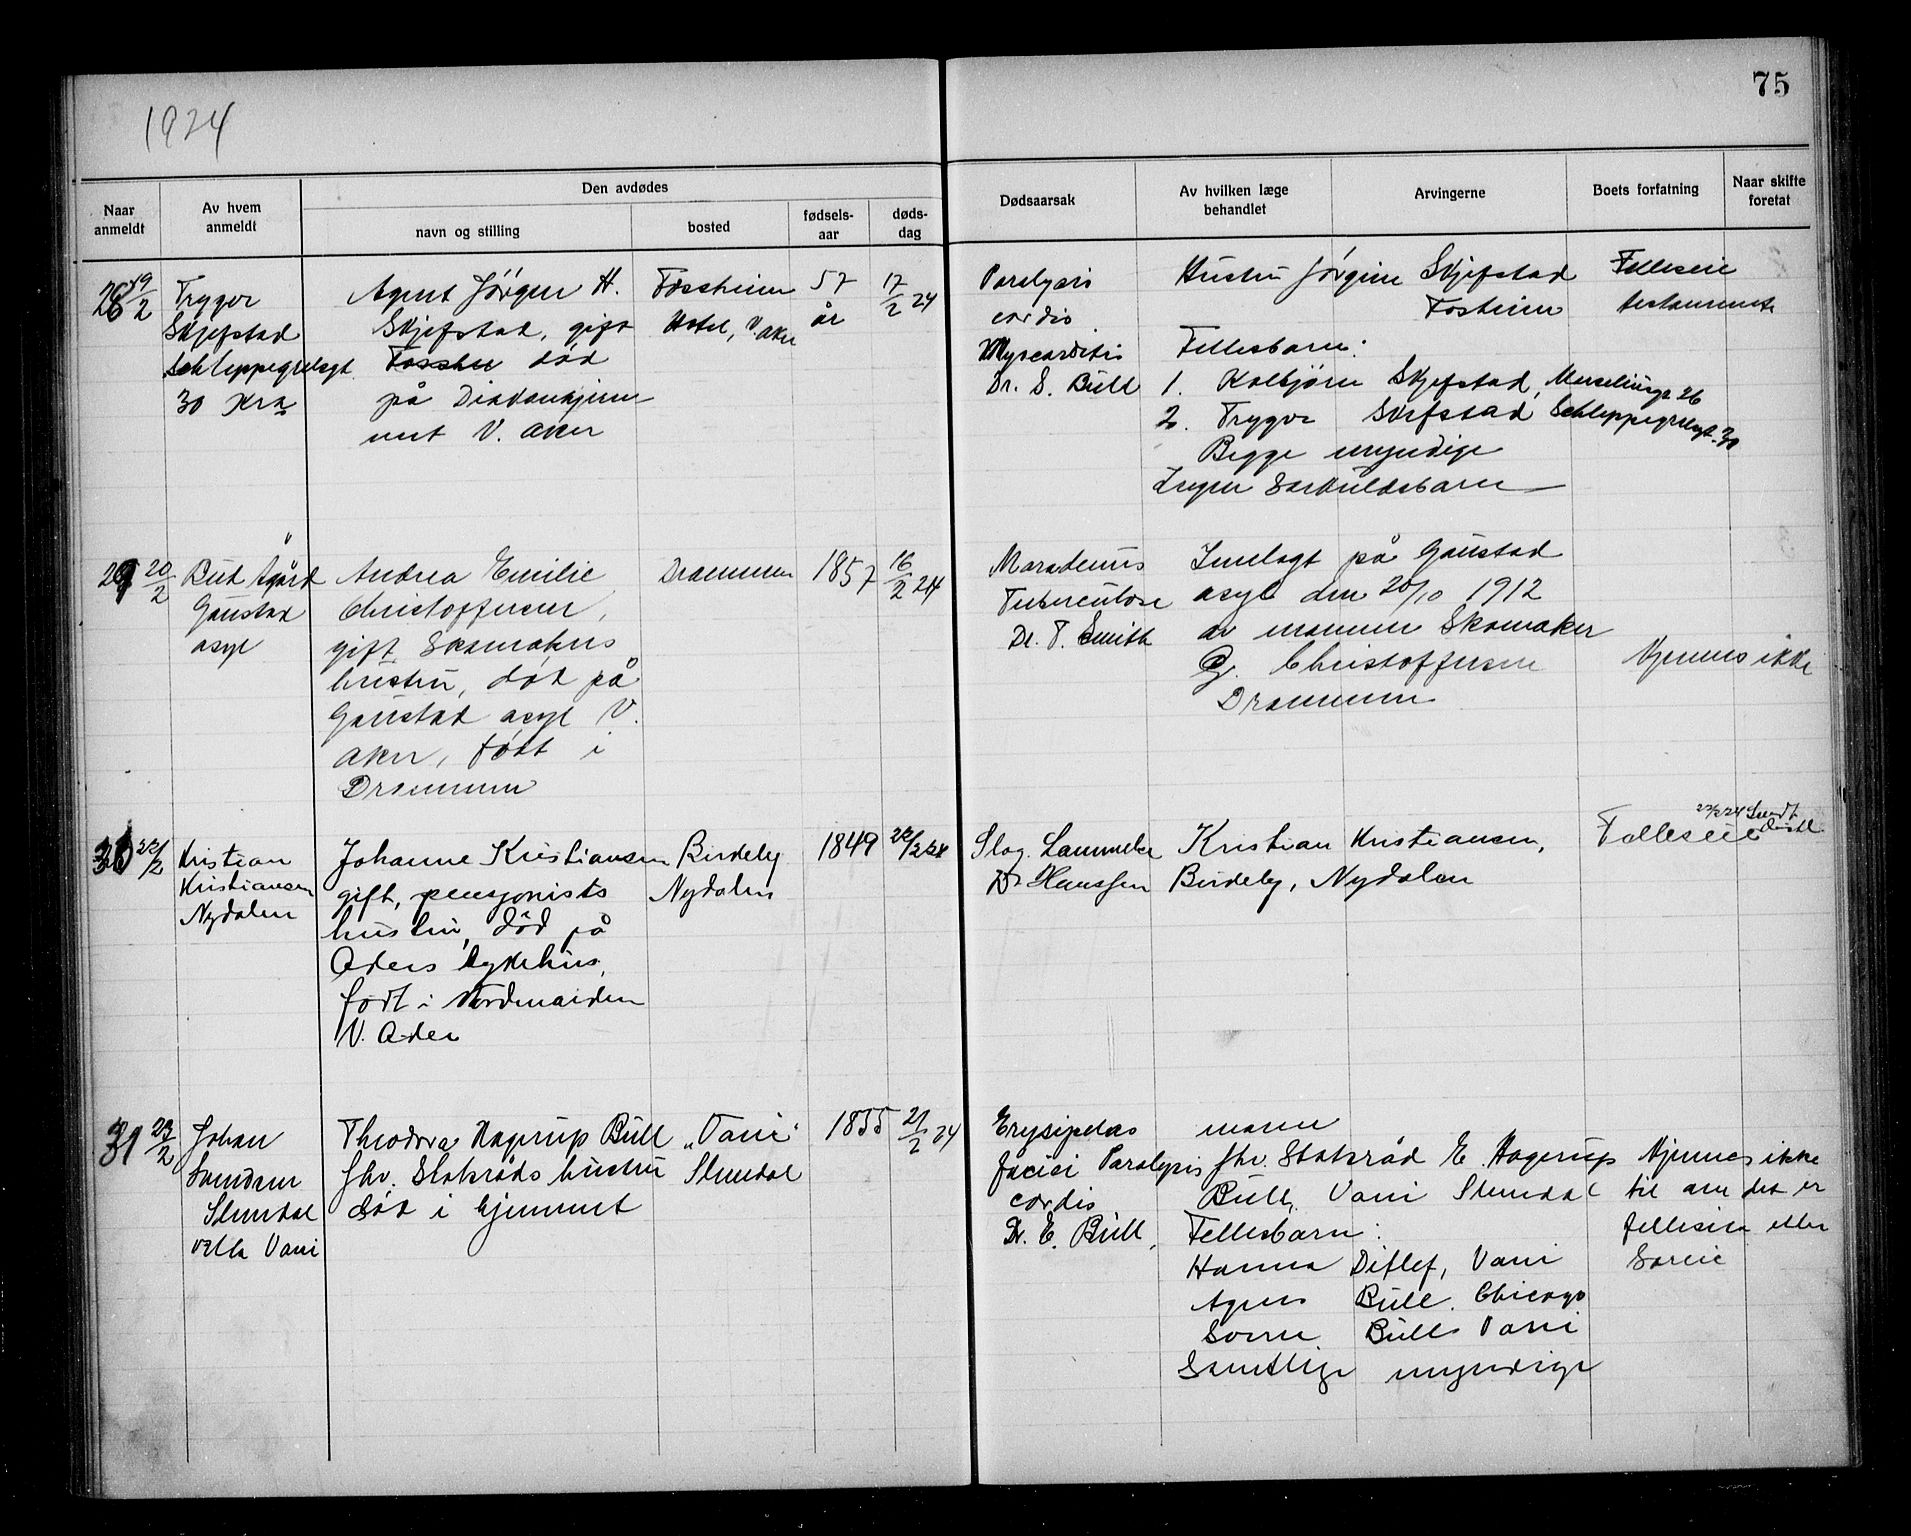 1924
75
Naar anmeldt
Av hvem anmeldt
Den avdødes
navn og stilling
bosted
fødsels-aar
døds-dag
Dødsaarsak
Av hvilken læge behandlet
Arvingerne
Boets forfatning
Naar skifte foretat
28 19/2
Trygve
Skjefstad
Schleppegrellsgt.
30 Kra
Agent Jörgen H.
Skjefstad, gift
død
på Diakonhjem-
met V. Aker
Fossheim
Hotel, V. Aker
57
år
17/2 24
Paralysis
cordis
Myocarditis
Dr. S. Bull
Hustru Jörgine Skjefstad
Fosheim
Fellesbarn:
1. Kolbjörn Skjefstad, 26
2. Trygve Skjefstad Schleppegrellsgt. 30
Begge myndige
Ingen særkuldsbarn
Felleseie
testamente
29 20/2
Gaustad
asyl
Andrea Emilie
Christoffersen,
gift, Skomakers
hustru, død på
Gaustad asyl V.
Aker, født i
Drammen
Drammen
1857
16/2 24
Marasmus
Tuberculose
Dr. T. Smith
Innlagt på Gaustad
asyl den 20/10 1912
av mannen Skomaker
Christoffersen
Drammen
Kjennes ikke
30 22/2
Kristian
Kristiansen
Nydalen
Johanne Kristiansen
gift, pensjonists
hustru, död på
Akers sykehus,
født i Nordmarken
V. Aker
Nydalen
1849
Slag. Lammelse
Dr Hanssen
Kristian Kristiansen,
Nydalen
Felleseie
31
Johan
Slemdal
villa Vani
Theodora Hagerup Bull
fhv. Statsråds hustru
död i hjemmet
„Vani"
Slemdal
1855
21/2 24
Erysipelas
faciei Paralysis
cordis
Dr. E. Bull,
mann
fhv. Statsråd E. Hagerup
Bull, Vani Slemdal
Fellesbarn:
Hanna Ditlef, Vani
Agnes Bull, Chicago
Bull, Vani
Samtlige myndige
Kjennes ikke
til om det er
felleseie eller
særeie